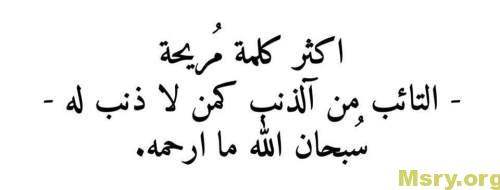 اكثر كلمة مُريحة
- التائب من آلذنب كمن لا ذنب له -
سُبحان الله ما ارحمه.
Msry.org